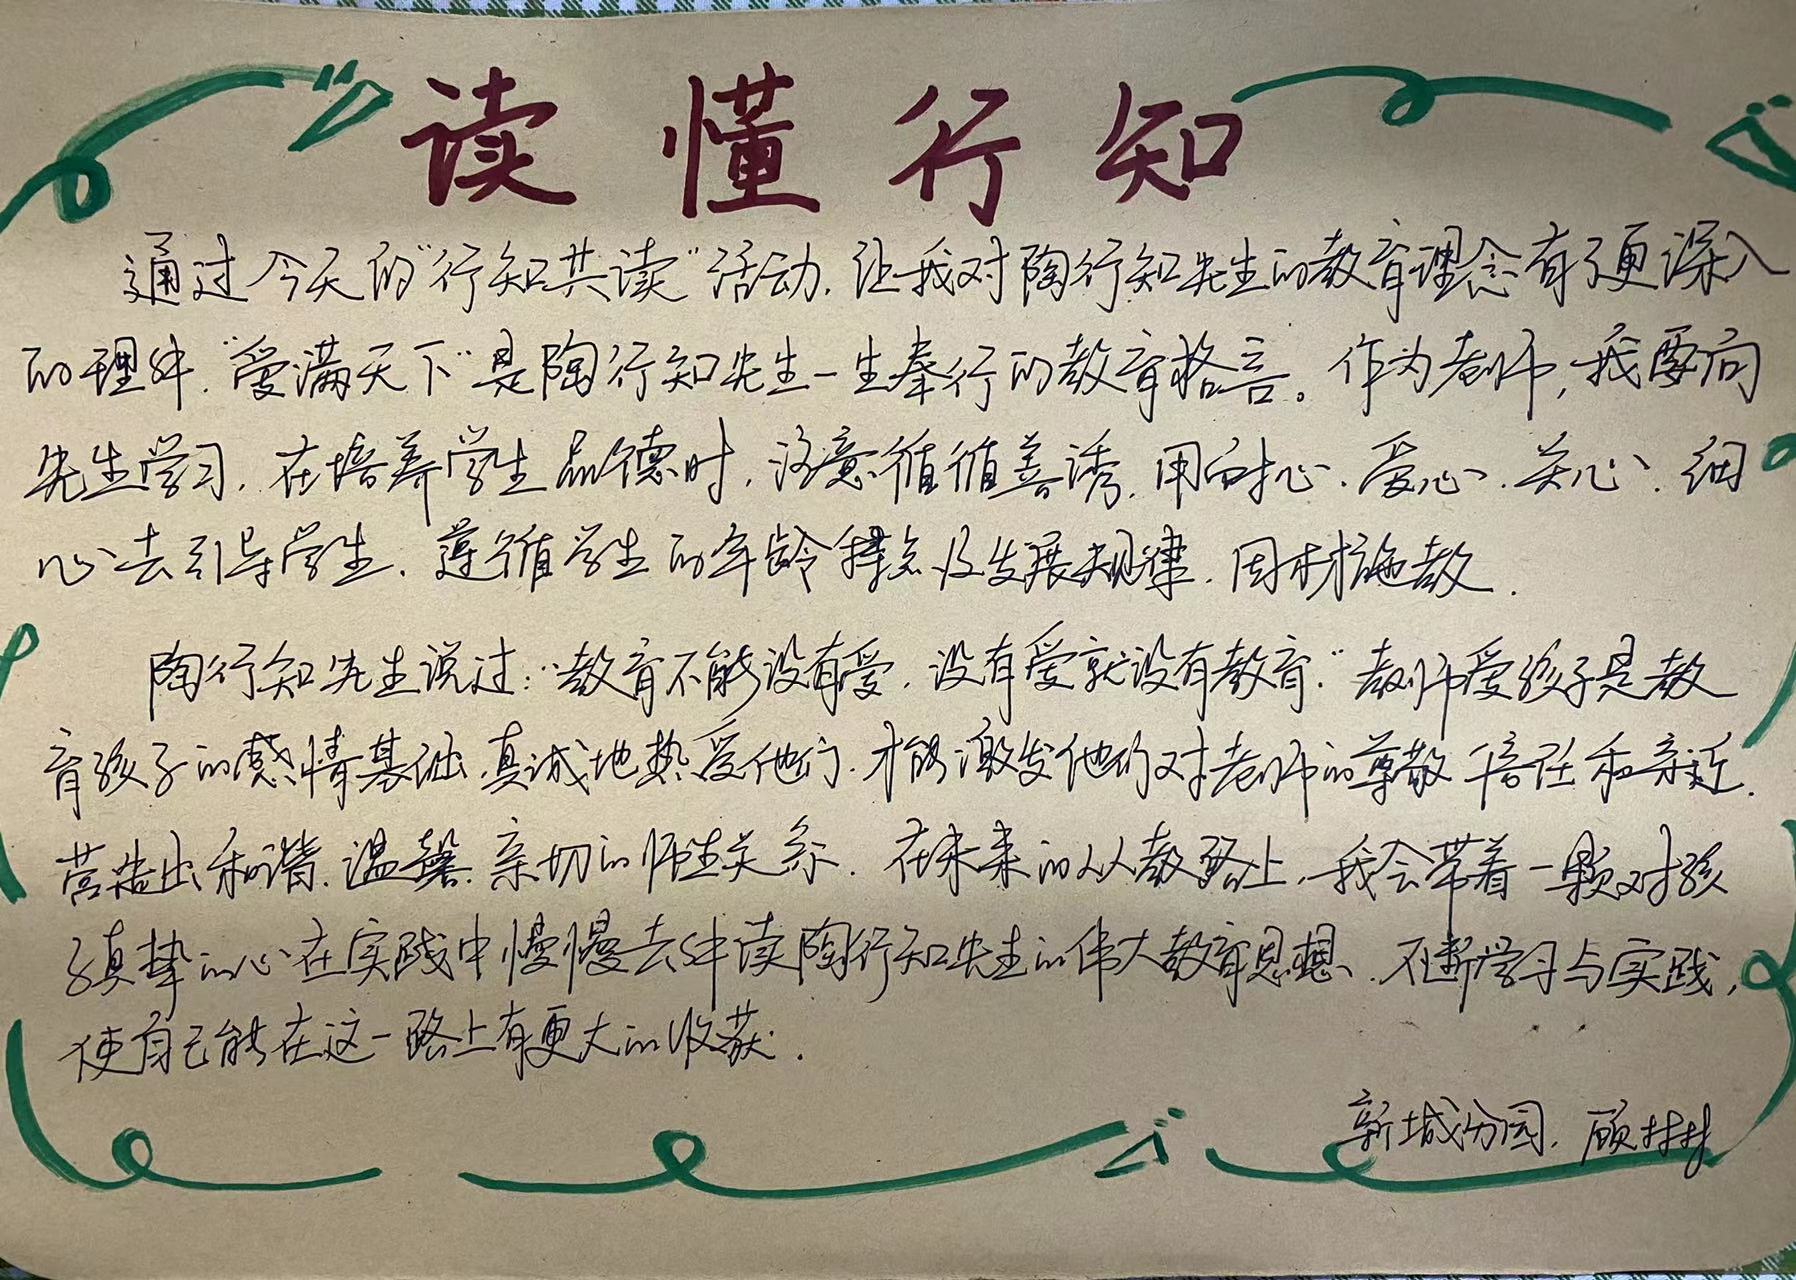 读懂行知
通过今天的“行知共读”活动，让我对陶行知先生的教育理念有了更深入
的理解。“爱满天下”是陶行知先生一生奉行的教育格言。作为老师，我要向
先生学习，在培养学生品德时，注意循循善诱，用耐心、爱心、关心、细
心去引导学生，遵循学生的年龄特点及发展规律，因材施教．
陶行知先生说过：“教育不能没有爱，没有爱就没有教育．”教师爱孩子是教
育孩子的感情基础，真诚地热爱他们，才能激发他们对老师的尊敬 信任和亲近．
营造出和谐、温馨、亲切的师生关系．在未来的从教路上，我会带着一颗对孩
子真挚的心在实践中慢慢去解读陶行知先生的伟大教育思想，不断学习与实践，
使自己能在这一路上有更大的收获．
新城分园．顾